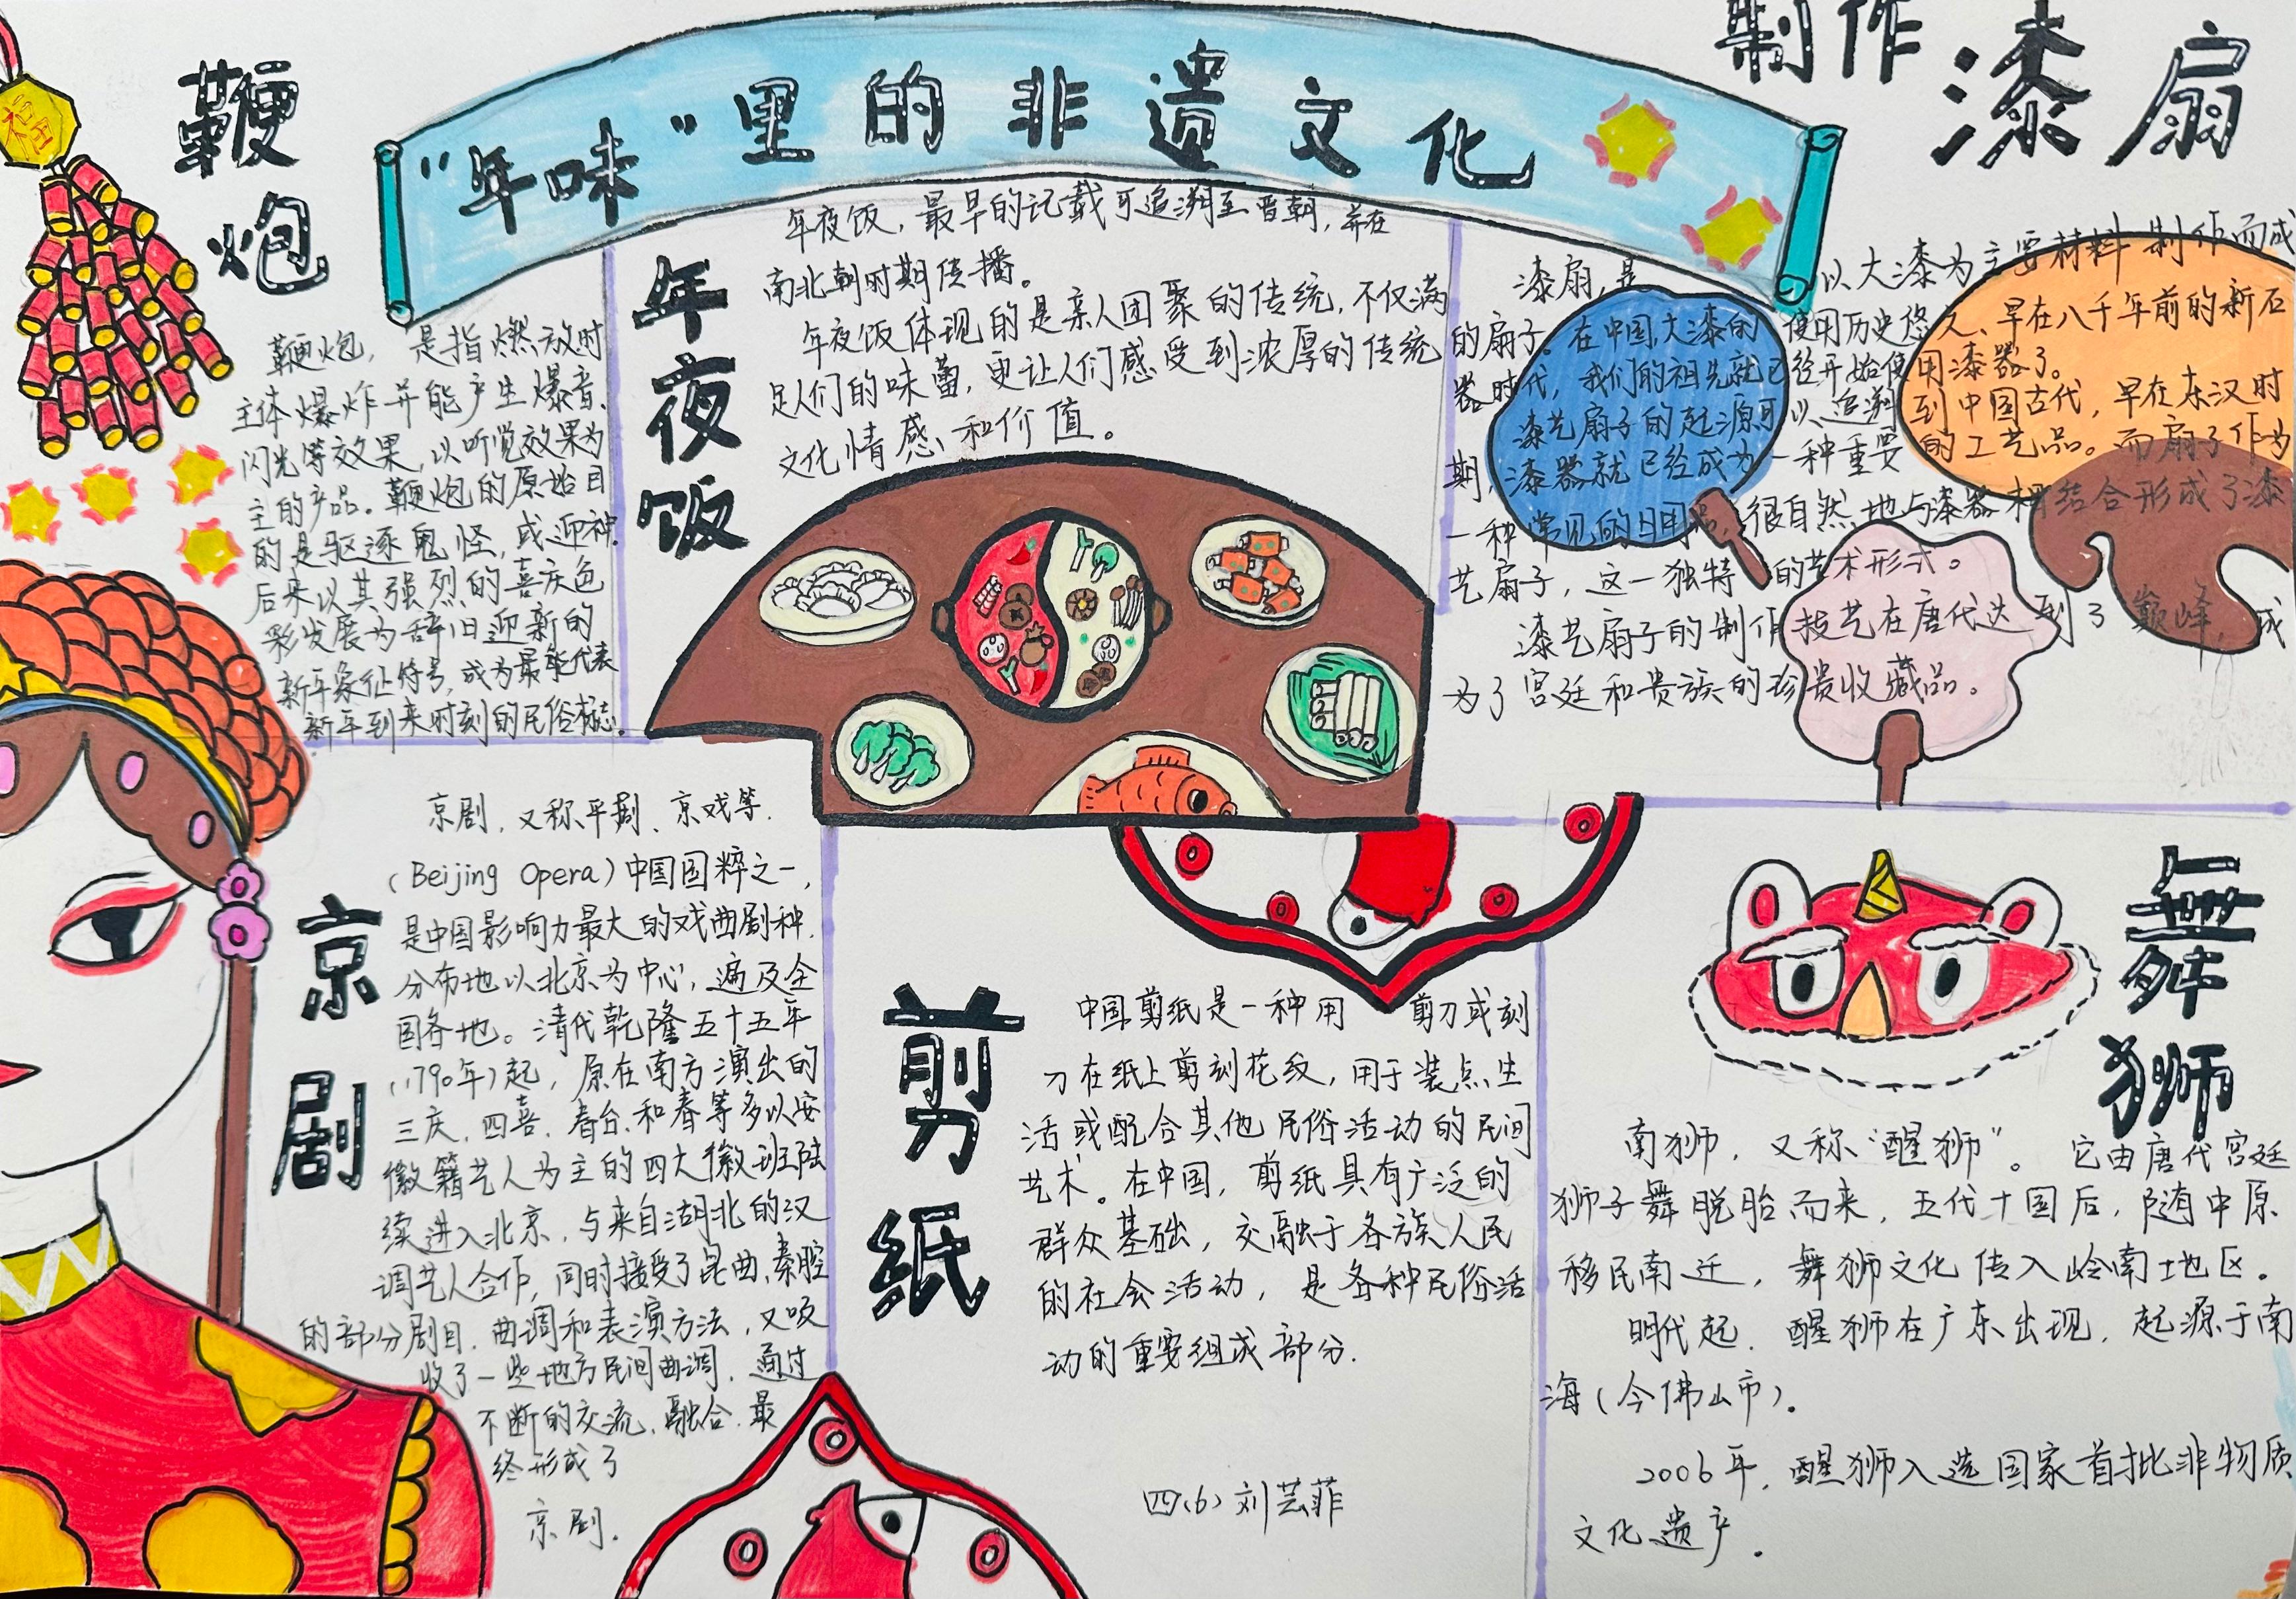 “年味”里的非遗文化
福
鞭炮
鞭炮，是指燃放时
主体爆炸并能产生爆音、
闪光等效果，以听觉效果为
主的产品。鞭炮的原始目
的是驱逐鬼怪，或迎神.
后来以其强烈的喜庆色
彩发展为辞旧迎新的
新年象征符号，成为最能代表
新年到来时刻的民俗标志.
年夜饭
年夜饭，最早的记载可追溯至晋朝，并在
南北朝时期传播。
年夜饭体现的是亲人团聚的传统，不仅满
足人们的味蕾，更让人们感受到浓厚的传统
文化情感和价值。
制作漆扇
漆扇，是以大漆为主要材料制作而成
的扇子。在中国，大漆的使用历史悠久、早在八千年前的新石
器时代，我们的祖先就已经开始使用漆器了。
漆艺扇子的起源可以追溯到中国古代，早在东汉时
期，漆器就已经成为一种重要的工艺品。而扇子作为
一种常见的日用品，很自然地与漆器相结合形成了漆
艺扇子，这一独特的艺术形式。
漆艺扇子的制作技艺在唐代达到了巅峰，成
为了宫廷和贵族的珍贵收藏品。
京剧
京剧，又称平剧、京戏等.
（Beijing Opera）中国国粹之一，
是中国影响力最大的戏曲剧种.
分布地以北京为中心，遍及全
国各地。清代乾隆五十五年
（1790年）起，原在南方演出的
三庆、四喜、春台、和春等多以安
徽籍艺人为主的四大徽班陆
续进入北京，与来自湖北的汉
调艺人合作，同时接受了昆曲、秦腔
的部分剧目、曲调和表演方法，又吸
收了一些地方民间曲调，通过
不断的交流、融合、最
终形成了
京剧.
剪纸
中国剪纸是一种用剪刀或刻
刀在纸上剪刻花纹，用于装点生
活或配合其他民俗活动的民间
艺术。在中国，剪纸具有广泛的
群众基础，交融于各族人民
的社会活动，是各种民俗活
动的重要组成部分.
四（6）刘芸菲
舞狮
南狮，又称“醒狮”。它由唐代宫廷
狮子舞脱胎而来，五代十国后，随中原
移民南迁，舞狮文化传入岭南地区。
明代起，醒狮在广东出现，起源于南
海（今佛山市）.
2006年，醒狮入选国家首批非物质
文化遗产.